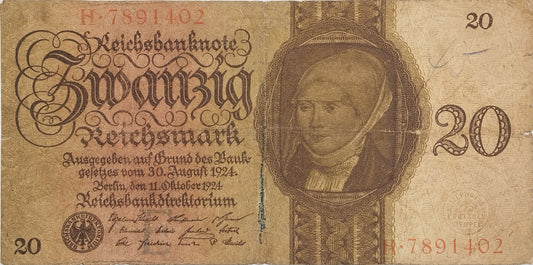 H·7891402
Reichsbanknote
20
Zwanzig
Reichsmark
20
Ausgegeben auf Grund des Bank-
gesetzes vom 30. August 1924.
Berlin, den 11. Oktober 1924
Reichsbankdirektorium
20
H·7891402